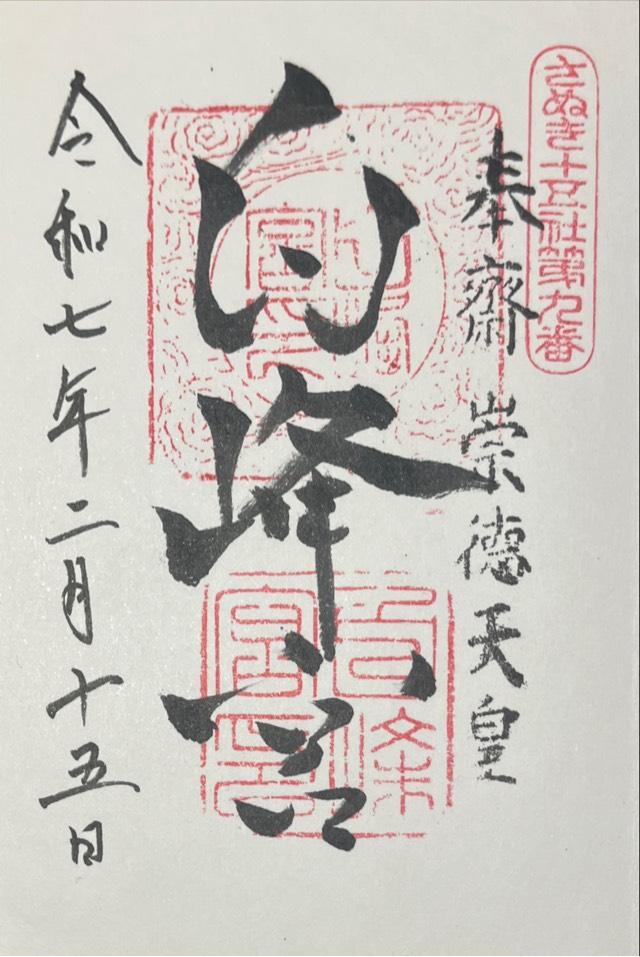 さぬき十五社第九番
奉齋 崇德天皇
白峰宮
令和七年二月十五日